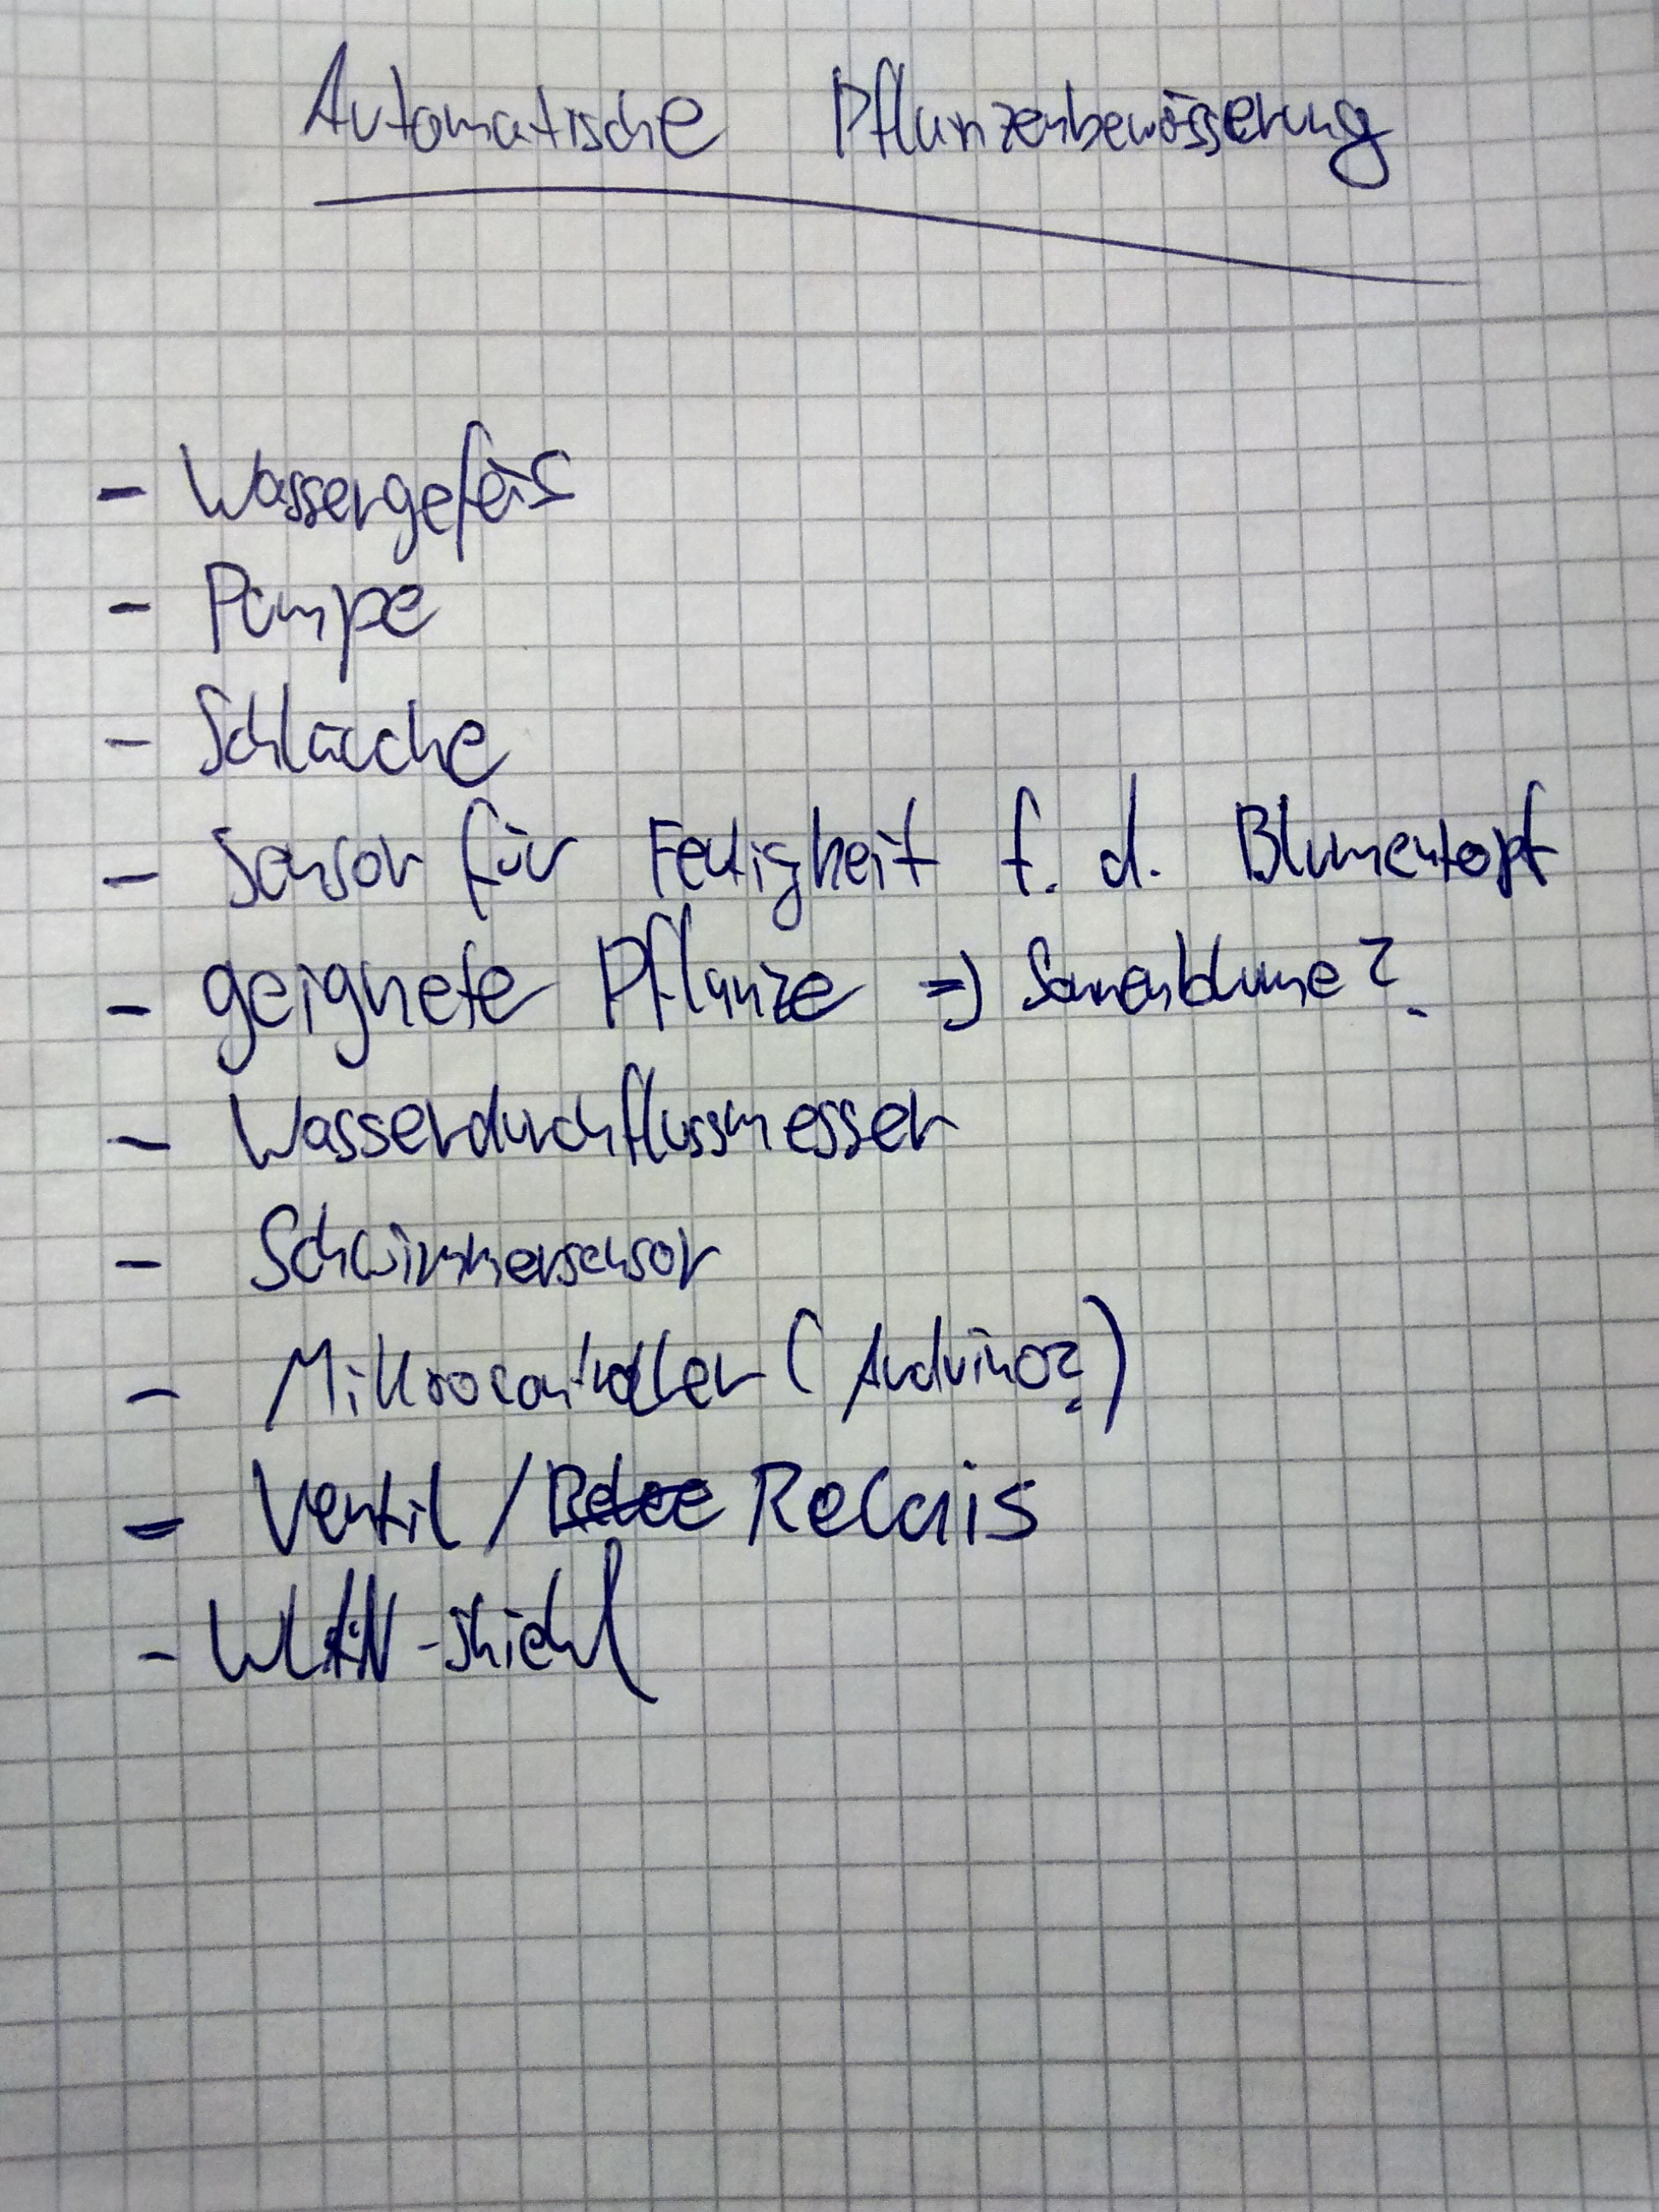 Automatische Pflanzenbewässerung
- Wassergefäß
- Pumpe
- Schläuche
- Sensor für Feutigkeit f. d. Blumentopf
- geignete Pflanze => Sonnenblume?
- Wasserdurchflussmesser
- Schwimmersensor
- Mikrocontroller (Arduino?)
- Ventil / Relais
- WLAN-shield